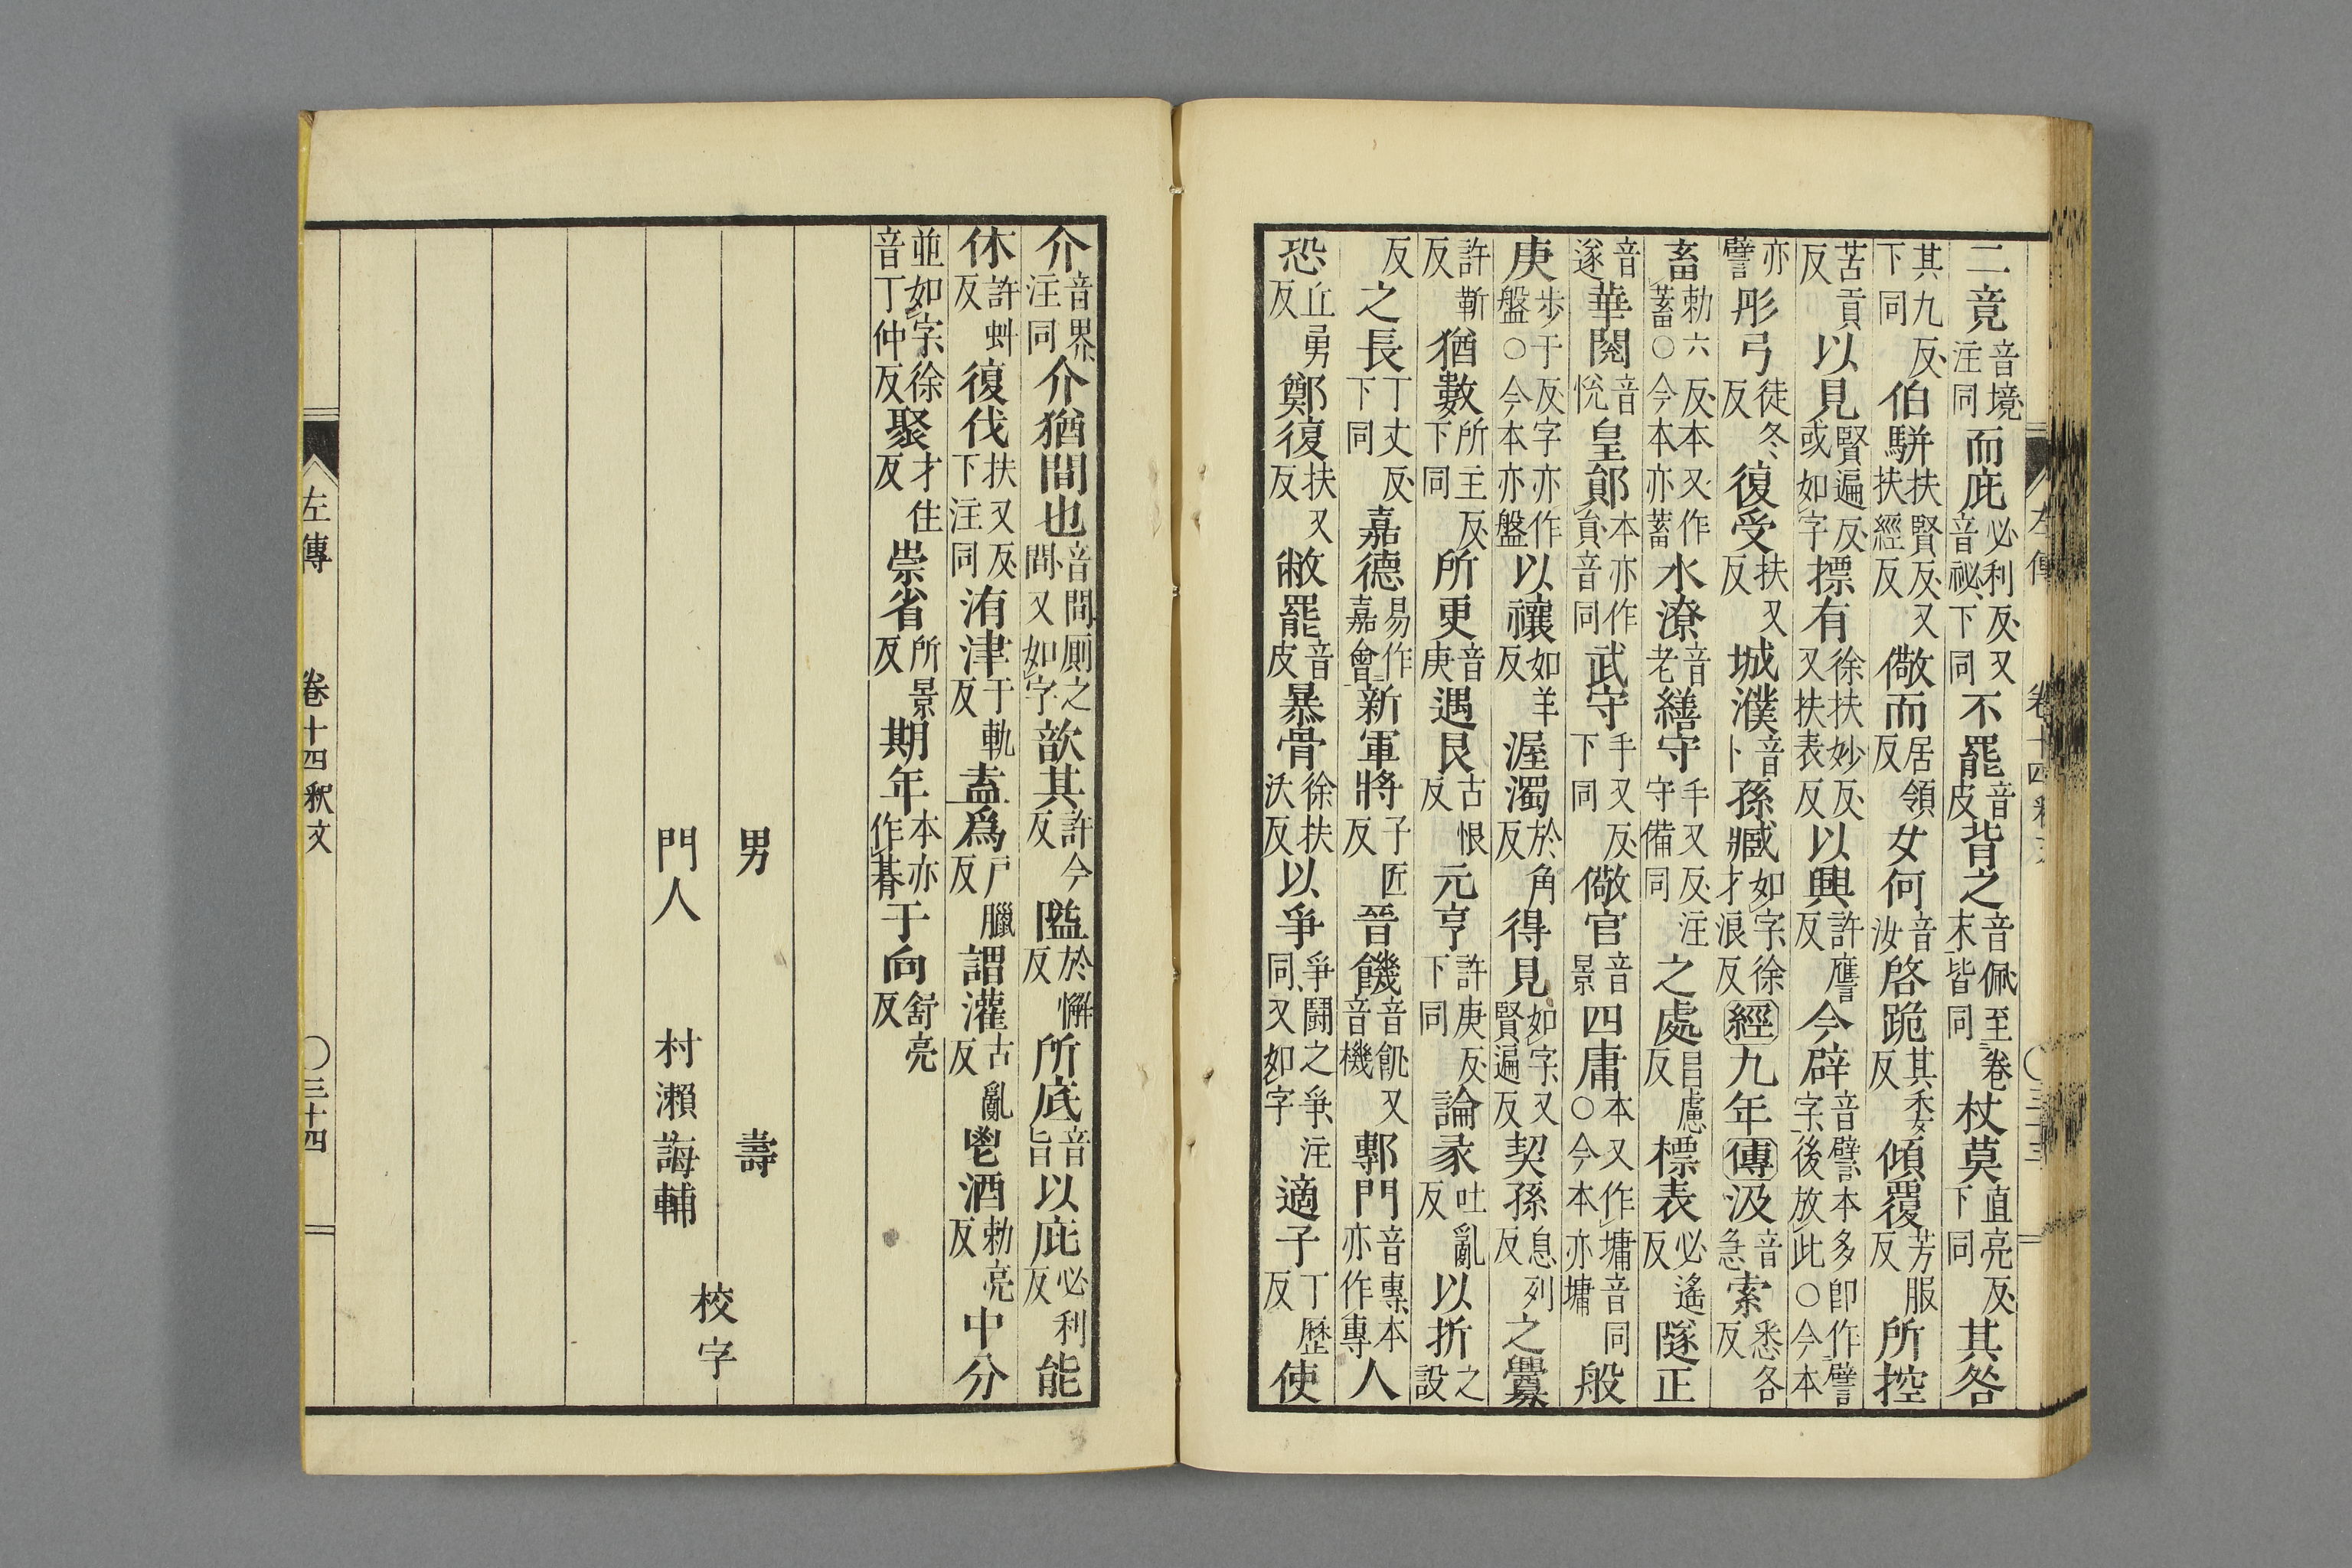 左傳 卷十四釈文 ○三十三
二竟音境注同而庇必利反又音祕下同不罷音皮背之音佩至卷末皆同杖莫直亮反下同其咎
其九反下同伯駢扶賢反又扶經反儆而居領反女何音汝啓跪其委反傾覆芳服反所控
苦貢反以見賢遍反或如字摽有徐扶妙反又扶表反以興許應反今辟音譬本多即作譬字後放此○今本
亦譬彤弓徒冬反復受扶又反城濮音卜孫臧如字徐才浪反經九年傳汲音急索悉各反
畜勅六反本又作蓄○今本亦蓄水潦音老繕守手又反注守備同之處昌慮反標表必遙反隧正
音遂華閱音悅皇鄖本亦作貟音同武守手又反下同儆官音景四庸本又作墉音同○今本亦墉般
庚步于反字亦作盤○今本亦盤以禳如羊反渥濁於角反得見如字又賢遍反契孫息列反之釁
許靳反猶數所主反下同所更音庚遇艮古恨反元亨許庚反下同論彖吐亂反以折之設
反之長丁丈反下同嘉德易作嘉會新軍將子匠反晉饑音飢又音機鄟門音專本亦作專人
恐丘勇反鄭復扶又反敝罷音皮暴骨徐扶沃反以爭爭鬪之爭注同又如字適子丁歷反使
介音界注同介猶間也音間厠之間又如字歆其許今反隘於懈反所底音旨以庇必利反能
休許虯反復伐扶又反下注同洧津于軌反盍爲戶臘反謂灌古亂反鬯酒勅亮反中分
並如字徐音丁仲反聚才住反崇省所景反期年本亦作朞于向舒亮反
男 壽
門人 村瀨誨輔
校字
左傳 卷十四釈文 ○三十四